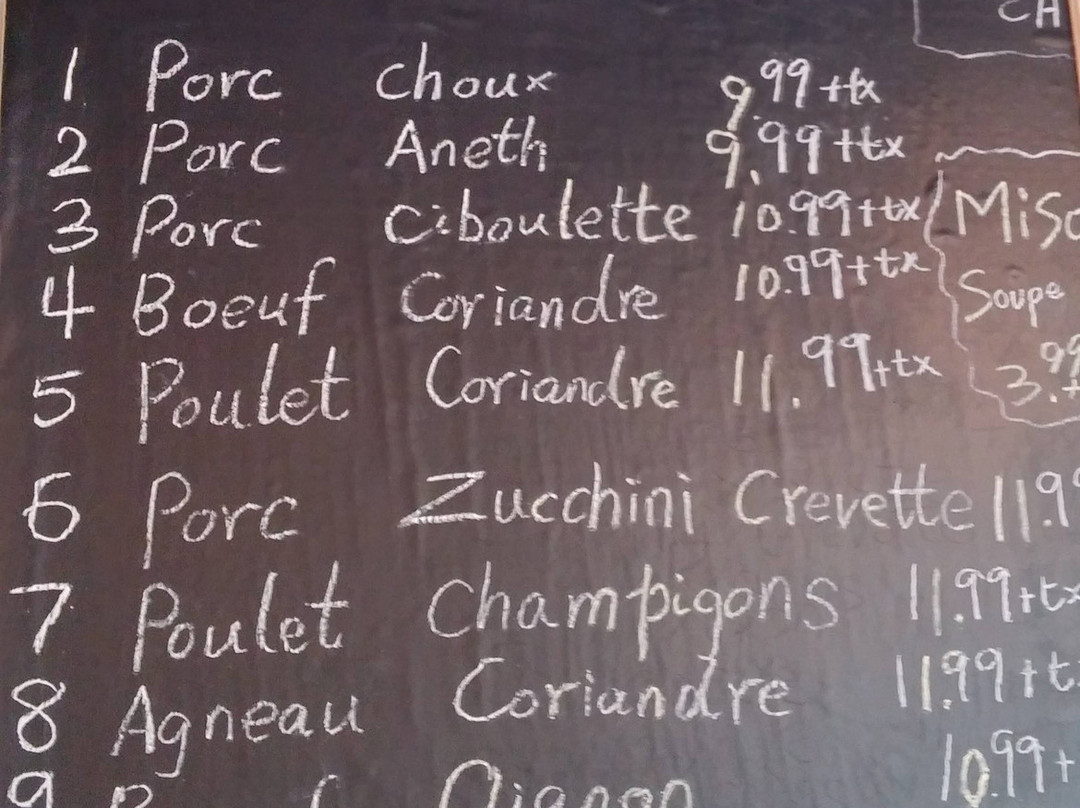 CH
1 Porc choux 9.99+tx
2 Porc Aneth 9.99+tx
3 Porc Ciboulette 10.99+tx
4 Boeuf Coriandre 10.99+tx
5 Poulet Coriandre 11.99+tx
Miso
Soupe
3.99+
6 Porc Zucchini Crevette 11.99
7 Poulet Champigons 11.99+tx
8 Agneau Coriandre 11.99+t
9 Oignon 10.99+